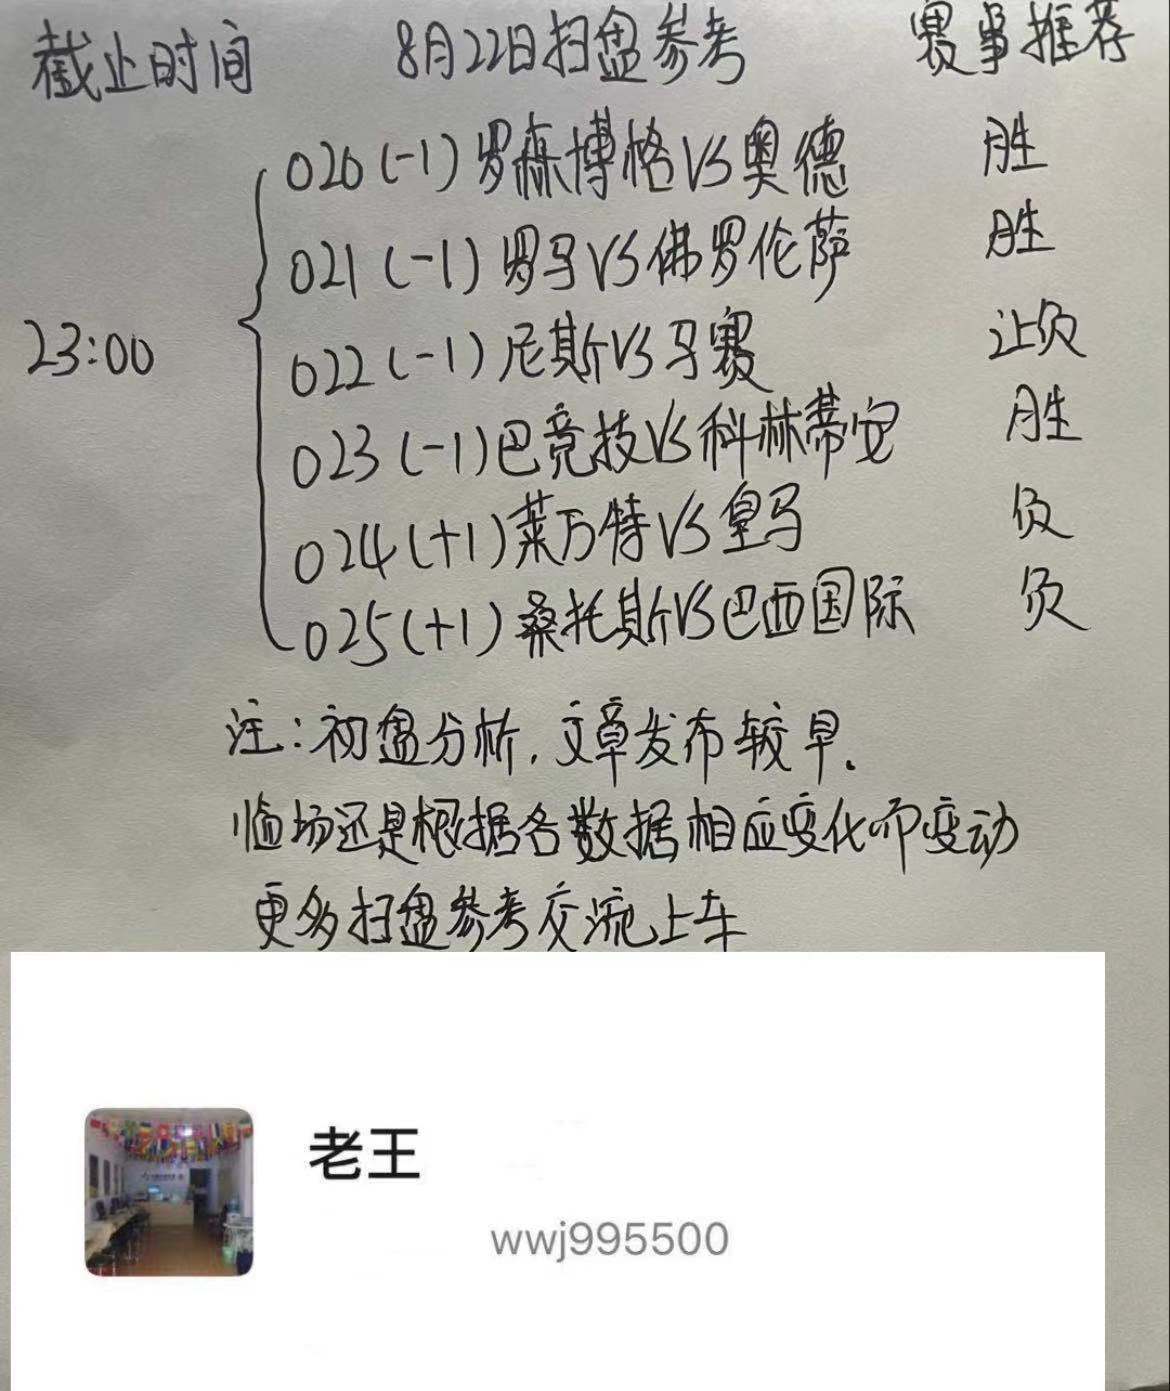 截止时间 8月22日扫盘参考 赛事推荐
020(-1)罗森博格VS奥德 胜
021(-1)罗马VS佛罗伦萨 胜
23:00 022(-1)尼斯VS马赛 让负
023(-1)巴竞技VS科林蒂安 胜
024(+1)莱万特VS皇马 负
025(+1)桑托斯VS巴西国际 负
注:初盘分析,文章发布较早.
临场还是根据各数据相应变化而变动
更多扫盘参考交流上车
老王
wwj995500